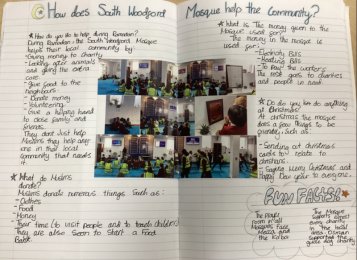 How does South Woodford Mosque help the Community?
* How do you like to help during Ramadan?
During Ramadan the South Woodford Mosque
helps their local community by:
- Giving money to charity
- Looking after animals
and giving the extra
care
- Give food to the
neighbours
- Donate money
- Volunteering
- Give a helping hand
to close family and
friends.
They dont just help
Muslims they help any
one in that local
community that needs
it.
* What do Muslims
donate?
Muslims donate numerous things such as:
- Clothes
- Food
- Money
- Their time (to visit people and to teach children)
they are also seen to start a Food
Bank.
* What is the money given to the
Mosque used for?
The money in the mosque is
used for:
- Electricity Bills
- Heating Bills
- To pay the workers
The rest goes to charities
and people in need.
* Do you do anything
at Christmas?
At christmas the mosque
does a few things to be
charity, such as:
- Sending out christmas
cards to
christians.
- Saying Merry Christmas and
Happy New year to everyone.
FUN FACTS!
The Prayer
room in all
Mosques Face
Mecca and
the Ka'ba
The Mosque
supports
every charity
in the local
area.
supported the
guide dog charity